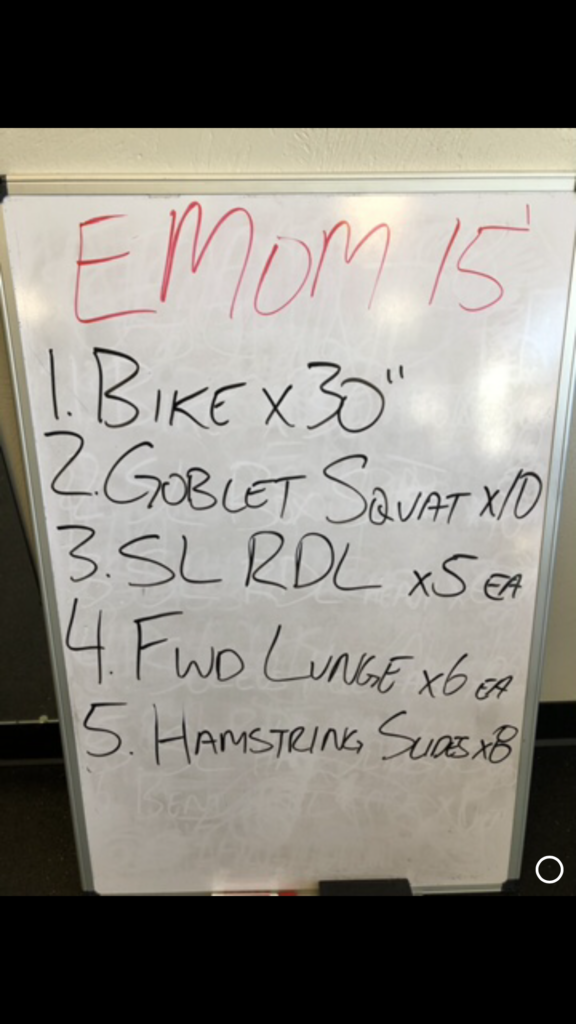 EMOM 15'
1. BIKE x 30"
2. GOBLET SQUAT x10
3. SL RDL x5 EA
4. FWD LUNGE x6 EA
5. HAMSTRING SLIDES x8